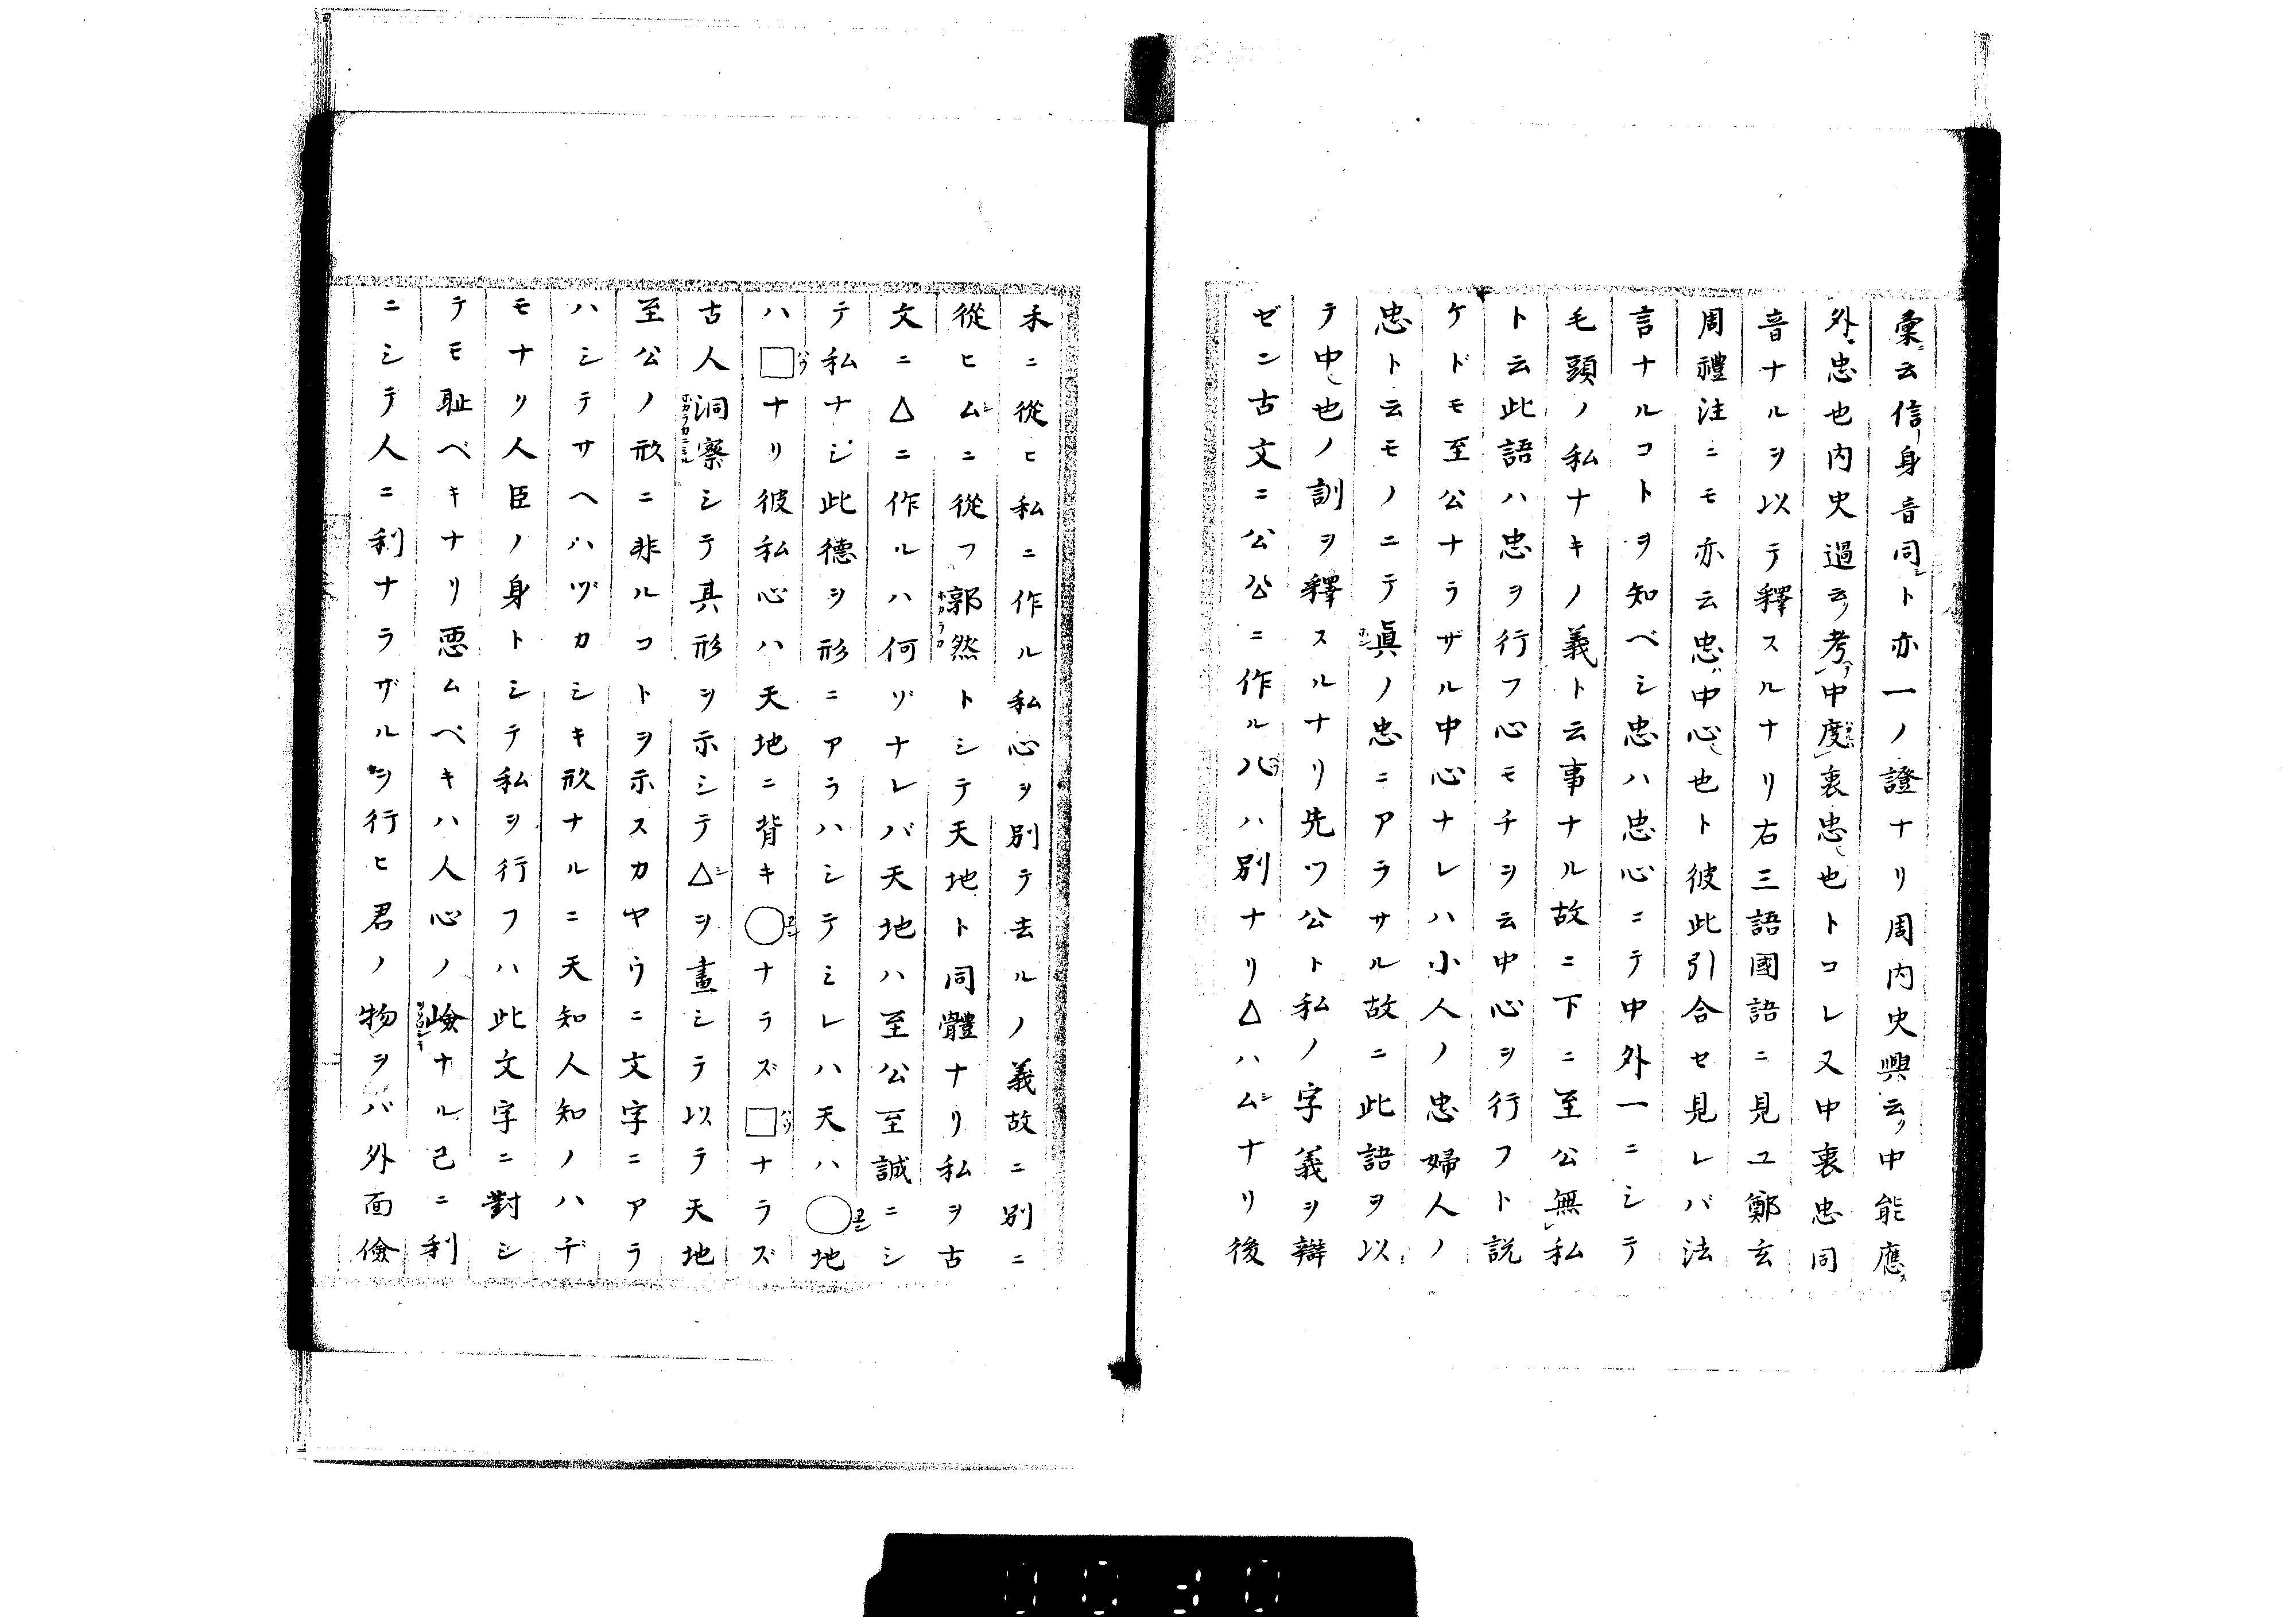 彙ニ云信身音同シト亦一ノ證ナリ周内史興云ク中能應ス
外ニ忠也内史過云ク考ブ中度衷忠也トコレ又中衷忠同
音ナルヲ以テ釋スルナリ右三語國語ニ見ユ鄭玄
周禮注ニモ亦云忠ハ中心也ト彼此引合セ見レバ法
言ナルコトヲ知ベシ忠ハ忠心ニテ中外一ニシテ
毛頭ノ私ナキノ義ト云事ナル故ニ下ニ至公無シ私
ト云此語ハ忠ヲ行フ心モチヲ云中心ヲ行フト説
ケドモ至公ナラザル中心ナレハ小人ノ忠婦人ノ
忠ト云モノニテ眞ノ忠ニアラサル故ニ此語ヲ以
テ中也ノ訓ヲ釋スルナリ先ツ公ト私ノ字義ヲ辯
ゼン古文ニ公公ニ作ル八ハ別ナリ△ハムナリ後
禾ニ從ヒ私ニ作ル私心ヲ別テ去ルノ義故ニ別ニ
從ヒムニ從フ郭然トシテ天地ト同體ナリ私ヲ古
文ニ△ニ作ルハ何ゾナレバ天地ハ至公至誠ニシ
テ私ナシ此德ヲ形ニアラハシテミレハ天ハ○地
ハ□ナリ彼私心ハ天地ニ背キ○ナラズ□ナラズ
古人洞察シテ其形ヲ示シテ△ヲ畫シテ以テ天地
至公ノ形ニ非ルコトヲ示スカヤウニ文字ニアラ
ハシテサヘハヅカシキ形ナルニ天知人知ノハヂ
モナリ人臣ノ身トシテ私ヲ行フハ此文字ニ對シ
テモ耻ベキナリ惡ムベキハ人心ノ嶮ナル己ニ利
ニシテ人ニ利ナラザルヲ行ヒ君ノ物ヲバ外面儉